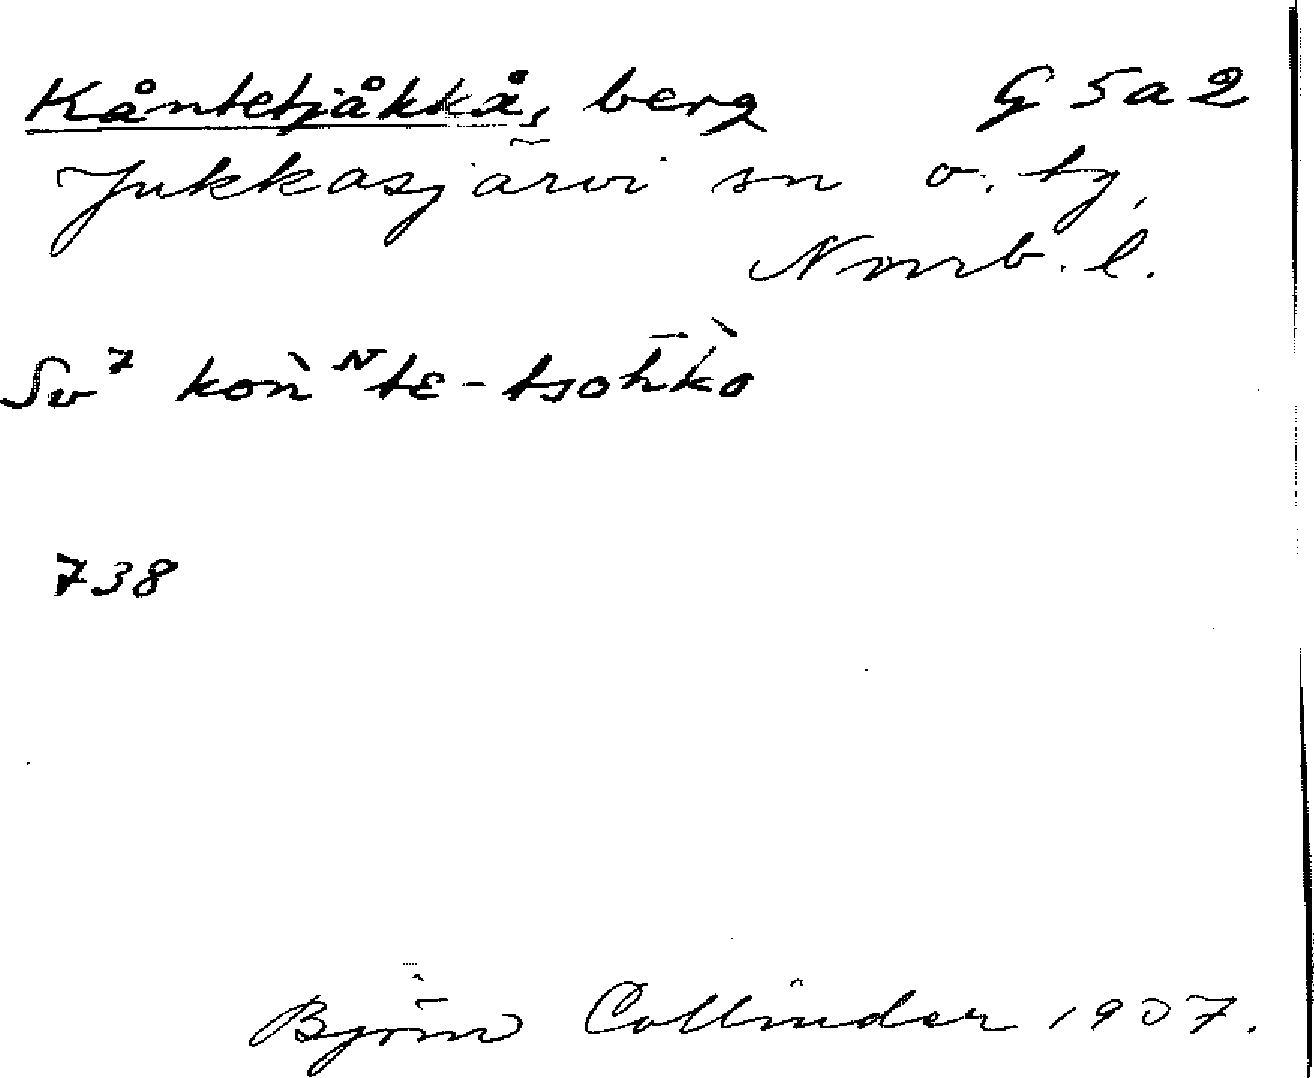 Kåntetjåkkå, berg G 5 a 2
Jukkasjärvi sn o. tg,
Norrb. l.
Sv⁷ koǹ ᴺtɛ-tsoh̄k̀o
738
Björn Collinder 1907.